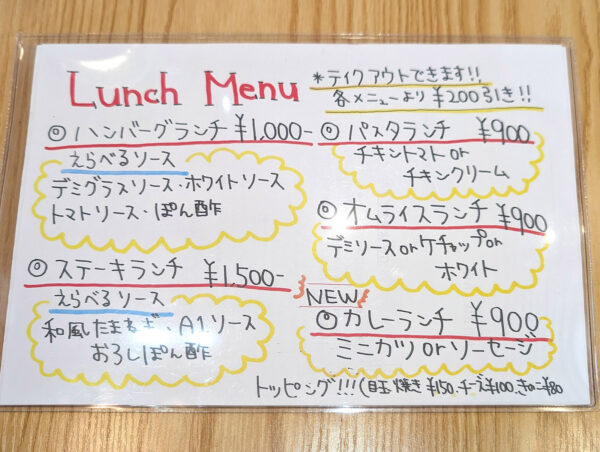 Lunch Menu
*テイクアウトできます!!
各メニューより¥200引き!!
◎ハンバーグランチ ¥1,000-
えらべるソース
デミグラスソース・ホワイトソース
トマトソース・ぽん酢
◎ステーキランチ ¥1,500-
えらべるソース
和風たまねぎ、A1ソース
おろしぽん酢
◎パスタランチ ¥900
チキントマト or
チキンクリーム
◎オムライスランチ ¥900
デミソース or ケチャップ or
ホワイト
NEW
◎カレーランチ ¥900
ミニカツ or ソーセージ
トッピング!!!(目玉焼き¥150、チーズ¥100、きのこ¥80